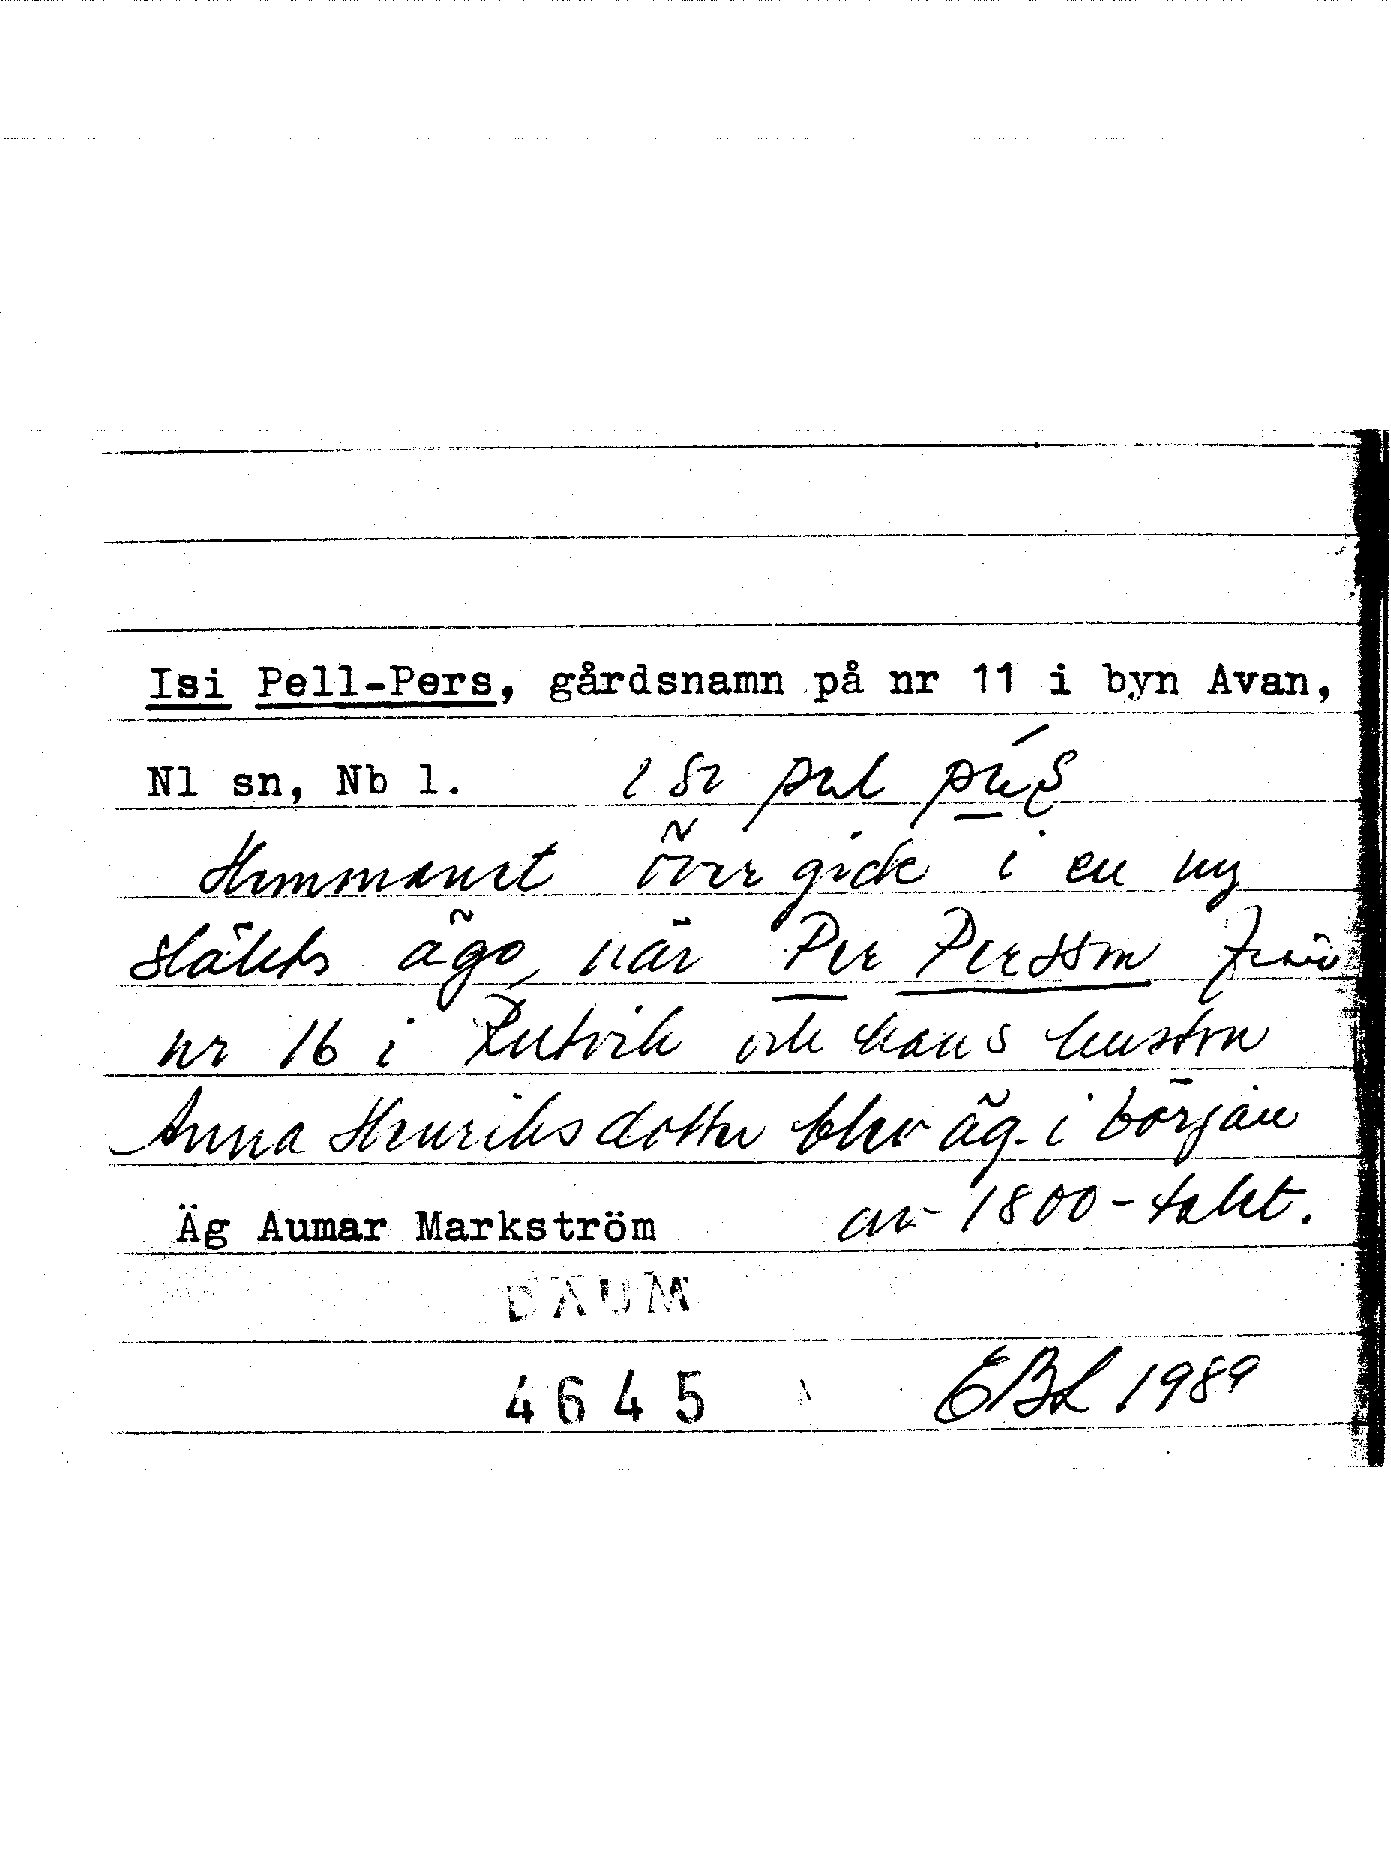 Isi Pell-Pers, gårdsnamn på nr 11 i byn Avan,
Nl sn, Nb l.
Hemmanet övergick i en ny
släkts ägo, när Per Persson från
nr 16 i Rutvik och hans hustru
Anna Henriksdotter blev äg. i början
av 1800-talet.
Äg Aumar Markström
DAUM
4645 EBL 1989